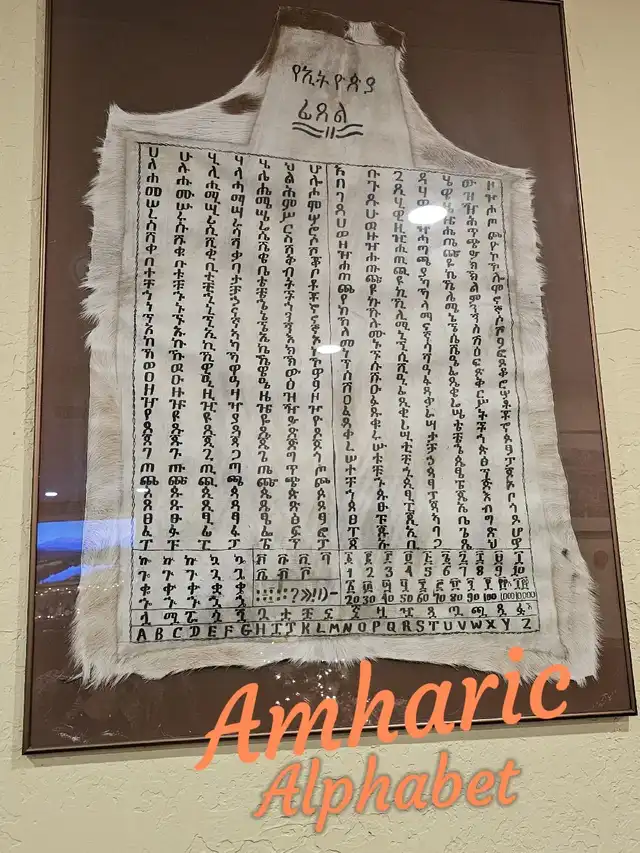 የኢትዮጵያ
ፊደል
ሀ ሁ ሂ ሃ ሄ ህ ሆ
ለ ሉ ሊ ላ ሌ ል ሎ
ሐ ሑ ሒ ሓ ሔ ሕ ሖ
መ ሙ ሚ ማ ሜ ም ሞ
ሠ ሡ ሢ ሣ ሤ ሥ ሦ
ረ ሩ ሪ ራ ሬ ር ሮ
ሰ ሱ ሲ ሳ ሴ ስ ሶ
ሸ ሹ ሺ ሻ ሼ ሽ ሾ
ቀ ቁ ቂ ቃ ቄ ቅ ቆ
በ ቡ ቢ ባ ቤ ብ ቦ
ተ ቱ ቲ ታ ቴ ት ቶ
ቸ ቹ ቺ ቻ ቼ ች ቾ
ኀ ኁ ኂ ኃ ኄ ኅ ኆ
ነ ኑ ኒ ና ኔ ን ኖ
ኘ ኙ ኚ ኛ ኜ ኝ ኞ
አ ኡ ኢ ኣ ኤ እ ኦ
ከ ኩ ኪ ካ ኬ ክ ኮ
ኸ ኹ ኺ ኻ ኼ ኽ ኾ
ወ ዉ ዊ ዋ ዌ ው ዎ
ዐ ዑ ዒ ዓ ዔ ዕ ዖ
ዘ ዙ ዚ ዛ ዜ ዝ ዞ
ዠ ዡ ዢ ዣ ዤ ዥ ዦ
የ ዩ ዪ ያ ዬ ይ ዮ
ደ ዱ ዲ ዳ ዴ ድ ዶ
ጀ ጁ ጂ ጃ ጄ ጅ ጆ
ገ ጉ ጊ ጋ ጌ ግ ጎ
ጠ ጡ ጢ ጣ ጤ ጥ ጦ
ጨ ጩ ጪ ጫ ጬ ጭ ጮ
ጰ ጱ ጲ ጳ ጴ ጵ ጶ
ጸ ጹ ጺ ጻ ጼ ጽ ጾ
ፀ ፁ ፂ ፃ ፄ ፅ ፆ
ፈ ፉ ፊ ፋ ፌ ፍ ፎ
ፐ ፑ ፒ ፓ ፔ ፕ ፖ
አ ቡ ጊ ዳ ሄ ው ዞ
በ ጉ ዲ ሃ ዌ ዝ ዦ
ገ ዱ ሂ ዋ ዜ ዥ ሖ
ደ ሁ ዊ ዛ ዤ ሕ ጦ
ሀ ዉ ዚ ዣ ሔ ጥ ጮ
ወ ዙ ዢ ሓ ጤ ጭ ዮ
ዘ ዡ ሒ ጣ ጬ ይ ኮ
ዠ ሑ ጢ ጫ ዬ ክ ኾ
ሐ ጡ ጪ ያ ኬ ኽ ሎ
ጠ ጩ ዪ ካ ኼ ል ሞ
ጨ ዩ ኪ ኻ ሌ ም ኖ
የ ኩ ኺ ላ ሜ ን ኞ
ከ ኹ ሊ ማ ኔ ኝ ሶ
ኸ ሉ ሚ ና ኜ ስ ሾ
ለ ሙ ኒ ኛ ሴ ሽ ዖ
መ ኑ ኚ ሳ ሼ ዕ ፎ
ነ ኙ ሲ ሻ ዔ ፍ ጾ
ኘ ሱ ሺ ዓ ፌ ጽ ቆ
ሰ ሹ ዒ ፋ ጼ ቅ ሮ
ሸ ዑ ፊ ጻ ቄ ር ሦ
ዐ ፉ ጺ ቃ ሬ ሥ ቶ
ፈ ጹ ቂ ራ ሤ ት ቾ
ጸ ቁ ሪ ሣ ቴ ች ኆ
ቀ ሩ ሢ ታ ቼ ኅ ጶ
ረ ሡ ቲ ቻ ኄ ጵ ፆ
ሠ ቱ ቺ ኃ ጴ ፅ ፖ
ተ ቹ ኂ ጳ ፄ ፕ ጆ
ቸ ኁ ጲ ፃ ፔ ጅ ኦ
ኀ ጱ ፂ ፓ ጄ እ ቦ
ጰ ፁ ፒ ጃ ኤ ብ ጎ
ፀ ፑ ጂ ኣ ቤ ግ ዶ
ፐ ጁ ኢ ባ ጌ ድ ሆ
ጀ ኡ ቢ ጋ ዴ ህ ዎ
፩ ፪ ፫ ፬ ፭ ፮ ፯ ፰ ፱ ፲
1 2 3 4 5 6 7 8 9 10
፳ ፴ ፵ ፶ ፷ ፸ ፹ ፺ ፻
20 30 40 50 60 70 80 90 100 1000 10000
A B C D E F G H I J K L M N O P Q R S T U V W X Y Z
Amharic
Alphabet